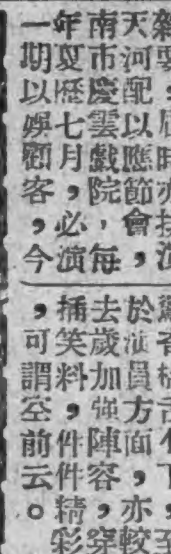 天河配以應節會，
南市慶雲戲院，每
年夏歷七月，必演
一期以娛顧客，今
於演員方面，亦較
去歲加強陣容，穿
插笑料，件件精彩
，可謂空前云。